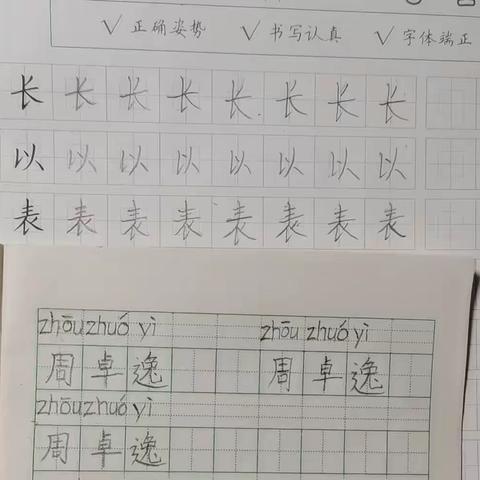 √ 正确姿势 √ 书写认真 √ 字体端正
长 长 长 长 长 长 长 长
以 以 以 以 以 以 以 以
表 表 表 表 表 表 表 表
zhōu zhuó yì zhōu zhuó yì
周 卓 逸 周 卓 逸
zhōu zhuó yì
周 卓 逸